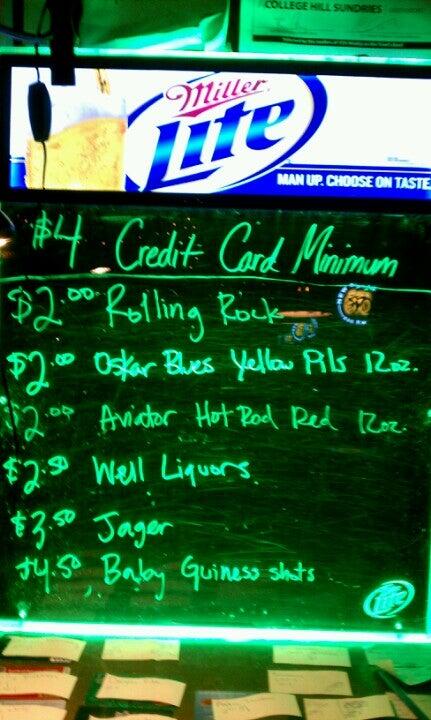 COLLEGE HILL SUNDRIES
Miller
Lite
MAN UP. CHOOSE ON TASTE
$4 Credit Card Minimum
$2.00 Rolling Rock
$2.00 Oskar Blues Yellow Pils 12oz.
$2.00 Aviator Hot Rod Red 12oz.
$2.50 Well Liquors
$3.50 Jager
$4.50 Baby Guiness shots
Lite